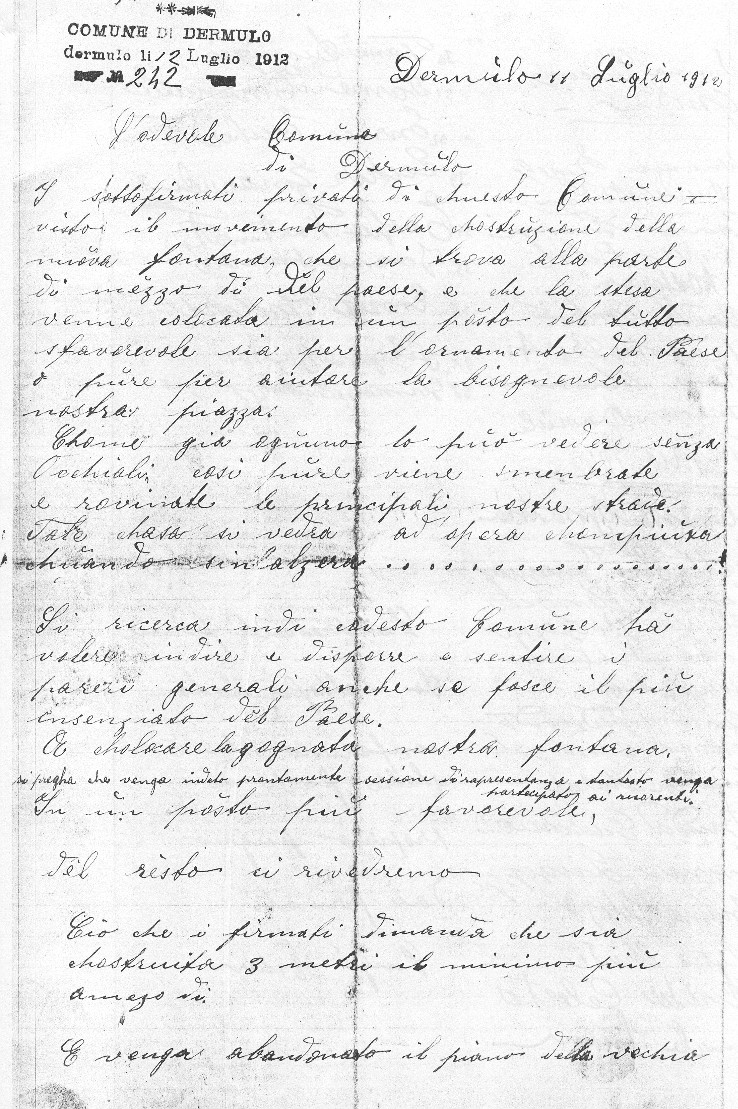 COMUNE DI DERMULO
dermulo li 12 Luglio 1912
№ 242
Dermulo 11 Luglio 1912
Lodevole Comune
di Dermulo
I sottofirmati privati di chuesto Comune
visto il movimento della chostruzione della
nuova fontana, che si trova alla parte
di mezzo di del paese, e che la stesa
venne colocata in un posto del tutto
sfavorevole sia per l'ornamento del Paese
o pure per aiutare la bisognevole
nostra piazza.
Chome gia ogniuno lo può vedere senza
Occhiali, cosi pure viene smenbrate
e rovinate le principali nostre strade.
Tale chosa si vedra ad opera chompiuta
chuando sin'alzera ..................!
Si ricerca indi codesto Comune ha
volere indire e disporre e sentire i
pareri generali anche se fosce il più
insenziato del Paese.
A cholocare la gognata nostra fontana.
si pregha che venga indeto prontamente sessione di rapresentanza e tantosto venga
partecipato ai ricorenti.
In un posto più favorevole,
del resto ci rivedremo
Ciò che i firmati dimanda che sia
chostruita 3 metri il minimo più
amezo di.
E venga abandonato il piano della vechia